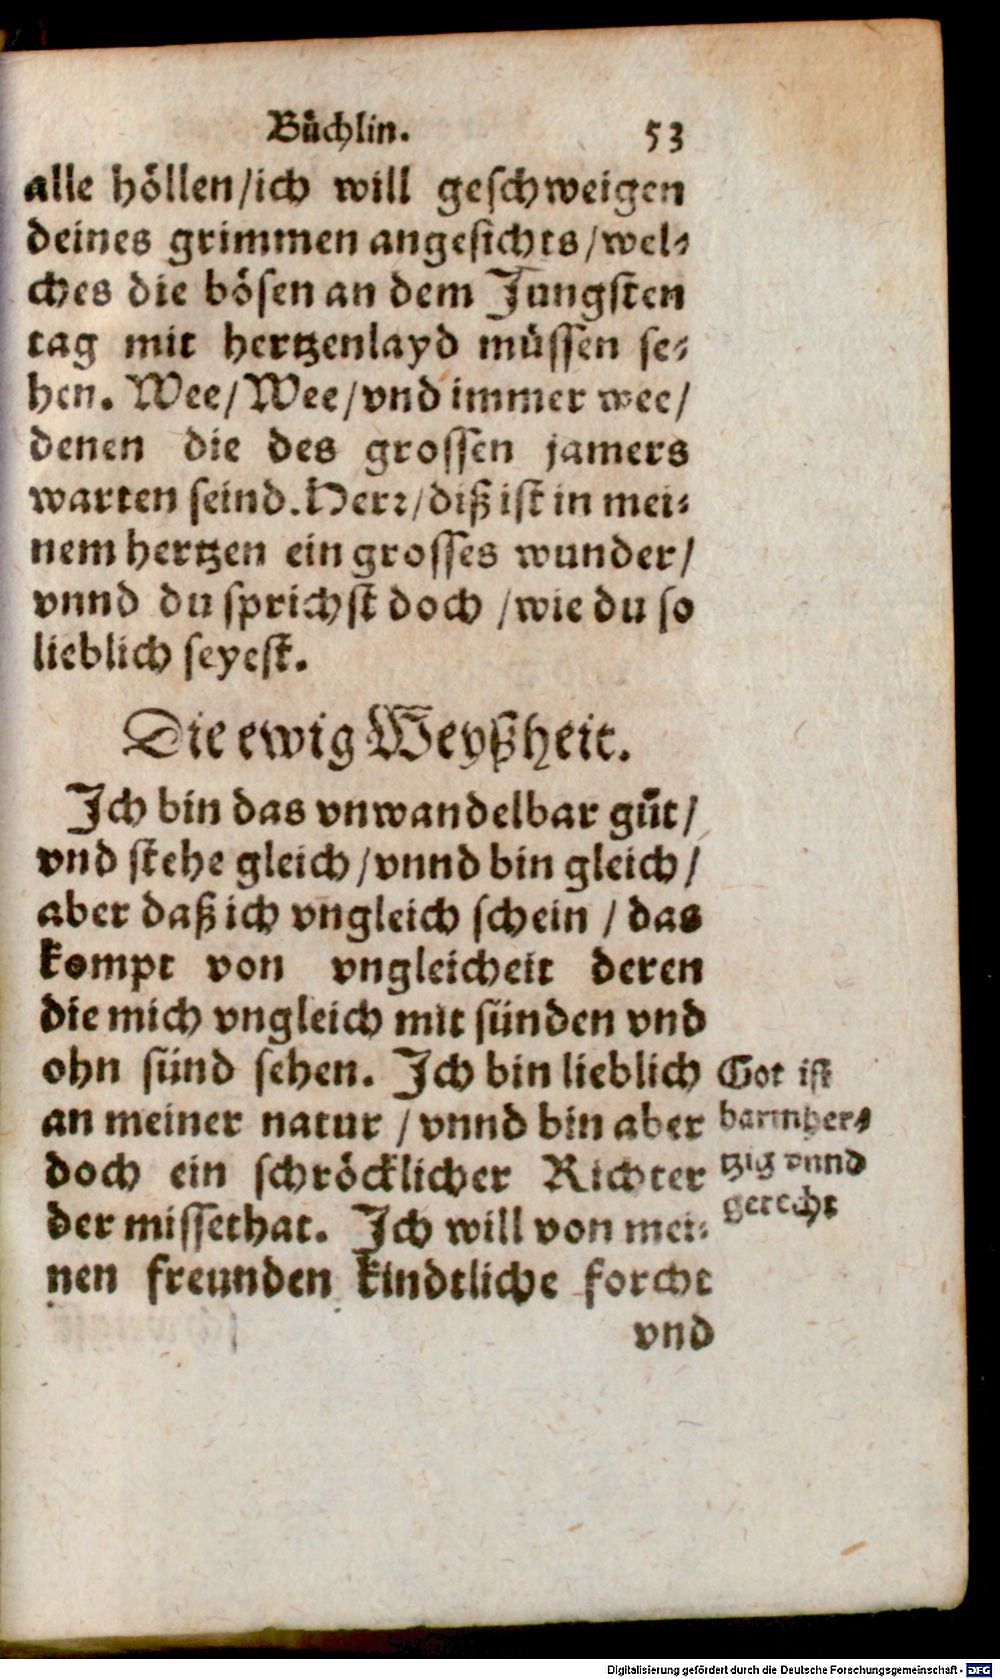 Büchlin. 53
alle höllen/ich will geschweigen
deines grimmen angesichts/wel-
ches die bösen an dem Jungsten
tag mit hertzenlayd müssen se-
hen. Wee/Wee/vnd immer wee/
denen die des grossen jamers
warten seind. Herr/diß ist in mei-
nem hertzen ein grosses wunder/
vnnd du sprichst doch/wie du so
lieblich seyest.
Die ewig Weyßheit.
Ich bin das vnwandelbar gůt/
vnd stehe gleich/vnnd bin gleich/
aber daß ich vngleich schein/das
kompt von vngleicheit deren
die mich vngleich mit sünden vnd
ohn sünd sehen. Ich bin lieblich
an meiner natur/vnnd bin aber
doch ein schröcklicher Richter
der missethat. Ich will von mei-
nen freunden kindtliche forcht
vnd
Got ist
barmher-
tzig vnnd
gerecht
Digitalisierung gefördert durch die Deutsche Forschungsgemeinschaft - DFG